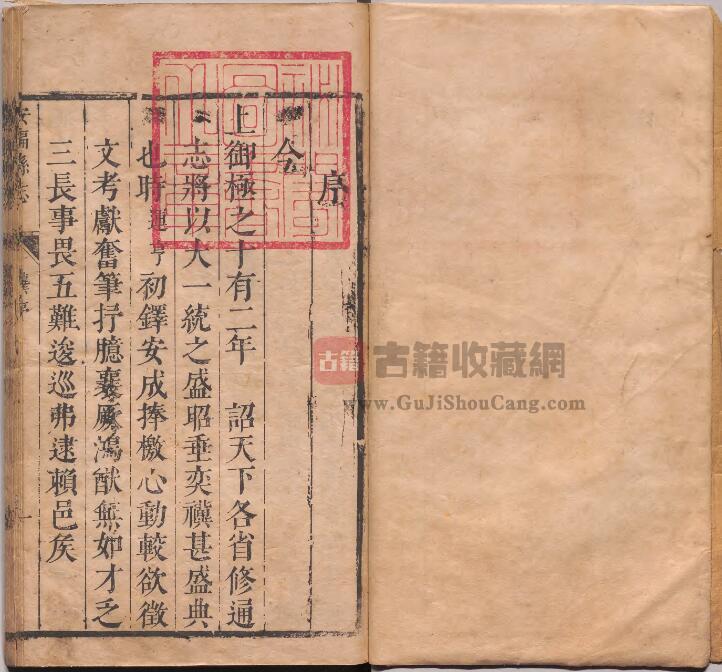 序
今
上御極之十有二年 詔天下各省修通
志將以大一統之盛昭垂奕禩甚盛典
也時運亨初鐸安成捧檄心動較欲徵
文考獻奮筆抒臆襄厥鴻猷無如才乏
三長事畏五難逡巡弗逮賴邑矦
安福縣志 序 一
古籍 古籍收藏網
www.GuJiShouCang.com